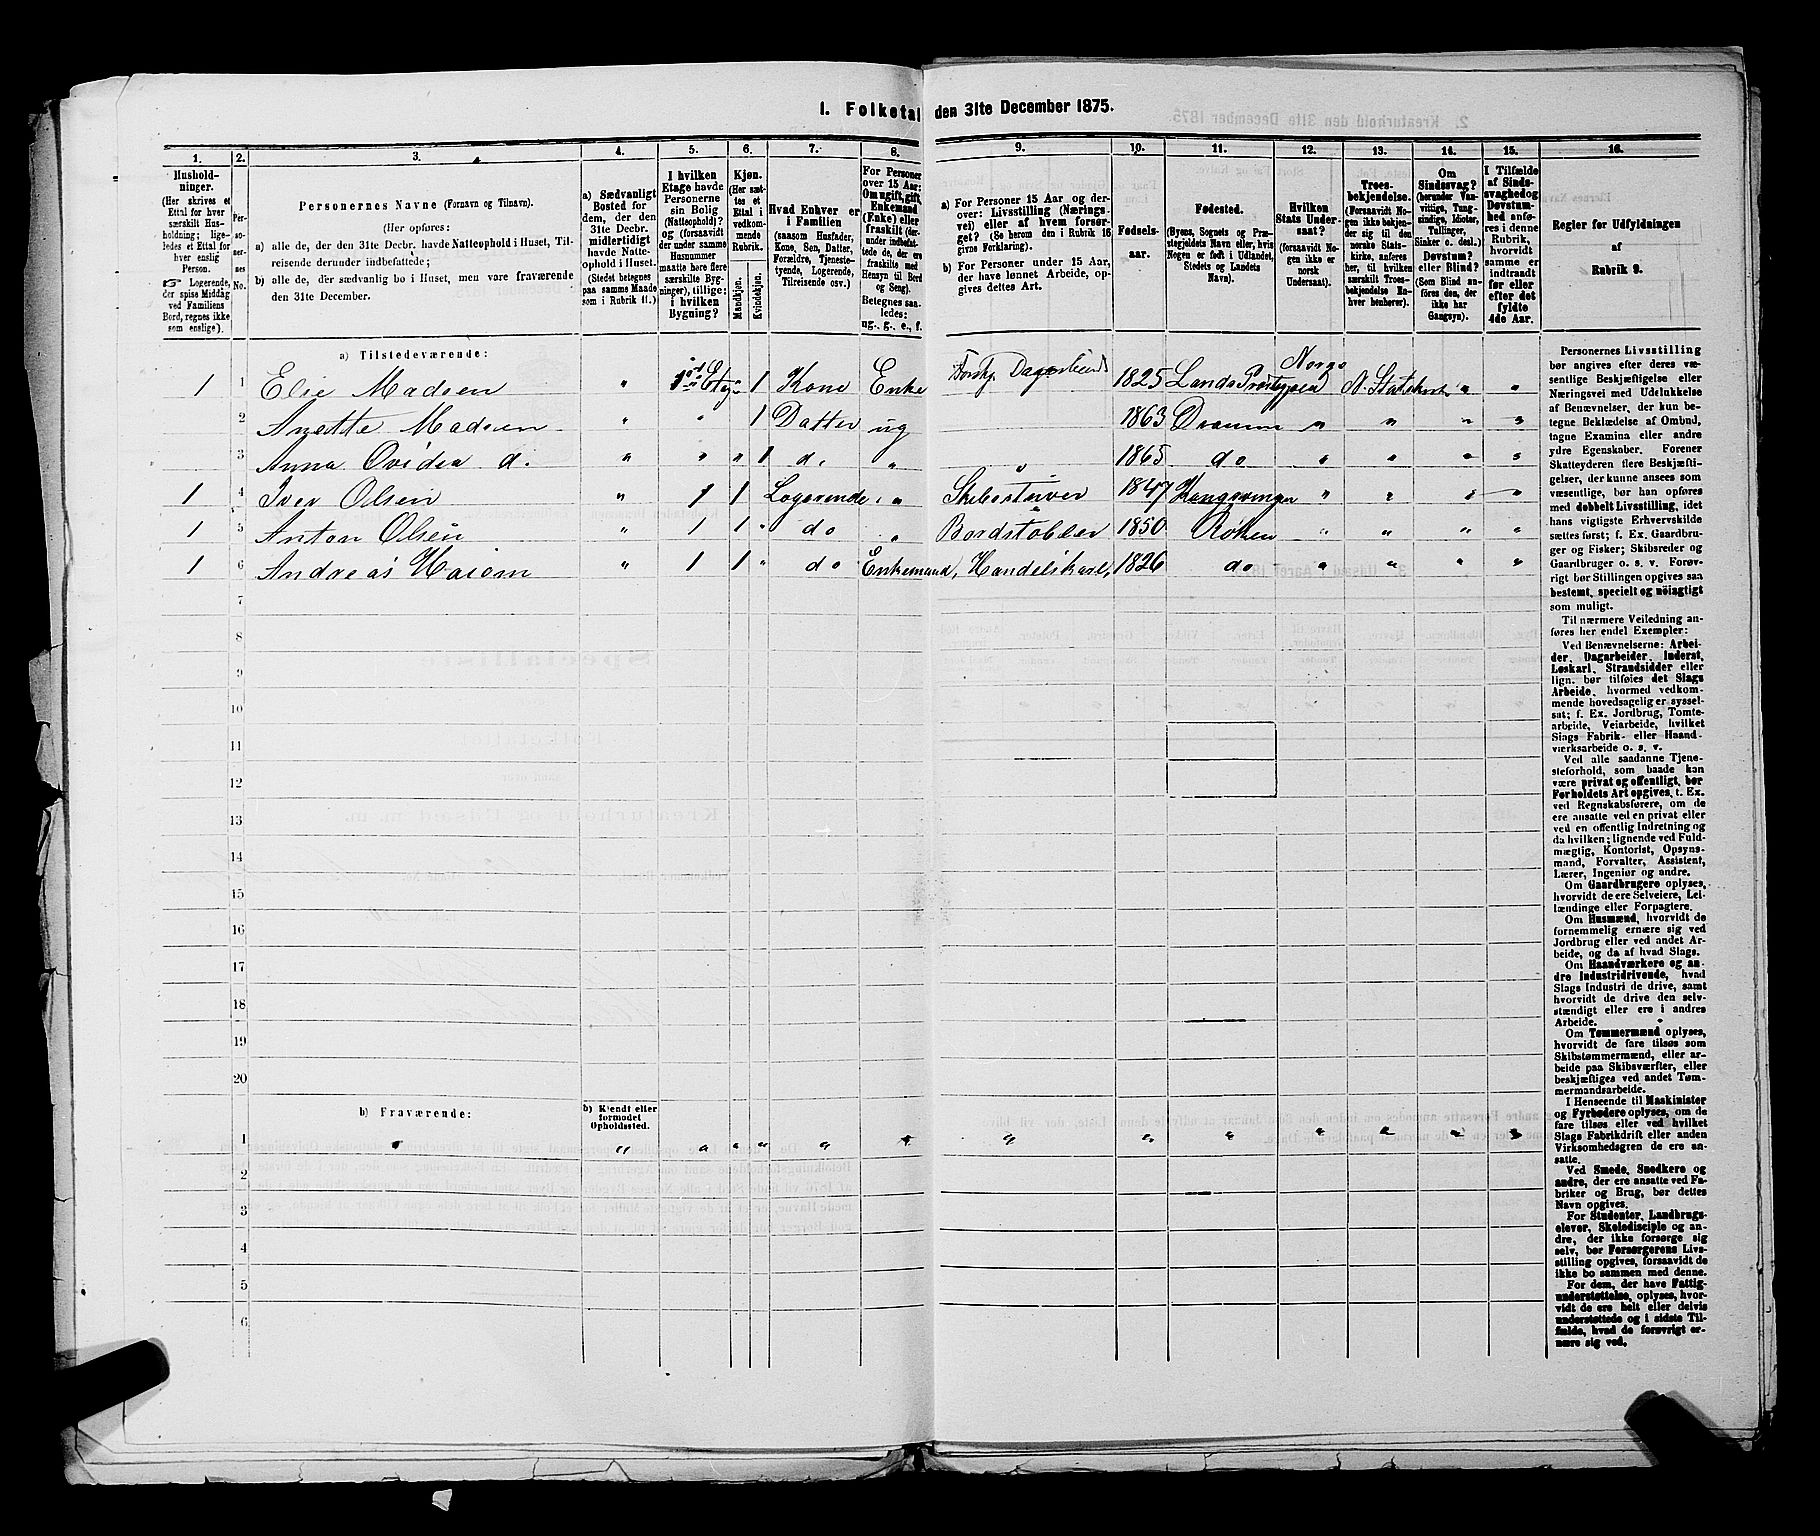 1. Folketal den 31te December 1875.
1. 2. 3. 4. 5. 6. 7. 8. 9. 10. 11. 12. 13. 14. 15. 16.
Hushold-
ninger.
(Her skrives et
Ettal for hver
særskilt Hus-
holdning; lige-
ledes et Ettal for
hver enslig
Person.
☞ Logerende,
der spise Middag
ved Familiens
Bord, regnes ikke
som enslige).
Per-
so-
ner-
nes
No.
Personernes Navne (Fornavn og Tilnavn).
(Her opføres:
a) alle de, der den 31te Decbr. havde Natteophold i Huset, Til-
reisende derunder indbefattede;
b) alle de, der sædvanlig bo i Huset, men vare fraværende
den 31te December.
a) Sædvanligt
Bosted for
dem, der den
31te Decbr.
midlertidigt
havde Natte-
ophold i Huset.
(Stedet betegnes
paa samme Maade
som i Rubrik 11.)
I hvilken
Etage havde
Personerne
sin Bolig
(Natteophold)?
og (forsaavidt
der under samme
Husnummer
maatte høre flere
særskilte Byg-
ninger), tillige:
i hvilken
Bygning?
Kjøn.
(Her sæt-
tes et
Ettal i
vedkom-
mende
Rubrik.
Mandkjøn.
Kvindekjøn.
Hvad Enhver er
i Familien
(saasom Husfader,
Kone, Søn, Datter,
Forældre, Tjeneste-
tyende, Logerende,
Tilreisende osv.)
For Personer
over 15 Aar:
Om ugift, gift,
Enkemand
(Enke) eller
fraskilt (der-
under indbefat-
tede de, der ere
fraskilte med
Hensyn til Bord
og Seng).
Betegnes saa-
ledes:
ug., g., e., f.
a) For Personer 15 Aar og der-
over: Livsstilling (Nærings-
vei) eller af hvem forsør-
get? (Se herom den i Rubrik 16
givne Forklaring).
b) For Personer under 15 Aar,
der have lønnet Arbeide, op-
gives dettes Art.
Fødsels-
aar.
Fødested.
(Byens, Sognets og Præ-
stegjeldets Navn eller, hvis
Nogen er født i Udlandet,
Stedets og Landets
Navn).
Hvilken
Stats Under-
saat?
(forsaavidt No-
gen ikke er
norsk
Undersaat).
Troes-
bekjendelse.
(Forsaavidt No-
gen ikke bekjen-
der sig til den
norske Stats-
kirke, anføres
her, til hvilken
særskilt Troes-
bekjendelse En-
hver henhører).
Om
Sindssvag?
(herunder Van-
vittige, Tung-
sindige, Idioter,
Tullinger,
Sinker o. desl.)
Døvstum?
eller Blind?
(Som Blind an-
føres den, der
ikke har
Gangsyn).
I Tilfælde
af Sinds-
svaghed og
Døvstum-
hed anfø-
res i denne
Rubrik,
hvorvidt
samme er
indtraadt
før eller
efter det
fyldte
4de Aar.
Regler for Udfyldningen
af
Rubrik 9.
a) Tilstedeværende:
1 1 Elie Madsen " 1ste Etage 1 Kone Enke Forsky. Dagarbeide 1825 Lands Præstegjeld Norge N. Statskirke " "
2 Anette Madsen " " 1 Datter ug 1863 Dramm " " " "
3 Anna Ovidea d. " " " 1 d. " " 1865 do " " " "
1 4 Iver Olsen " 1 1 Logerende " Skibsstuver 1847 Kongsvinger " " " "
1 5 Anton Olsen " 1 1 " do " Bordstabler 1850 Røken " " " "
1 6 Andreas " 1 1 " do Enkemand, Handelskarl, 1826 do " " " "
7
8
9
10
11
12
13
14
15
16
17
18
19
20
b) Fraværende:
b) Kjendt eller
formodet
Opholdssted.
1 " " " " " " " " " " " " " "
2
3
4
5
6
Personernes Livsstilling
bør angives efter deres væ-
sentlige Beskjæftigelse eller
Næringsvei med Udelukkelse
af Benævnelser, der kun be-
tegne Beklædelse af Ombud,
tagne Examina eller andre
ydre Egenskaber. Forener
Skatteyderen flere Beskjæfti-
gelser, der kunne ansees som
væsentlige, bør han opføres
med dobbelt Livsstilling, idet
hans vigtigste Erhvervskilde
sættes først; f. Ex. Gaardbru-
ger og Fisker; Skibsreder og
Gaardbruger o. s. v. Forøv-
rigt bør Stillingen opgives saa
bestemt, specielt og nøiagtigt
som muligt.
Til nærmere Veiledning an-
føres her endel Exempler:
Ved Benævnelserne: Arbei-
der, Dagarbeider, Inderst,
Løskarl, Strandsidder eller
lign. bør tilføies det Slags
Arbeide, hvormed vedkom-
mende hovedsagelig er syssel-
sat; f. Ex. Jordbrug, Tomte-
arbeide, Veiarbeide, hvilket
Slags Fabrik- eller Haand-
værksarbeide o. s. v.
Ved alle saadanne Tjene-
steforhold, som baade kan
være privat og offentligt, bør
Forholdets Art opgives, f. Ex.
ved Regnskabsførere, om de
ere ansatte ved en privat eller
ved en offentlig Indretning og
da hvilken; lignende ved Fuld-
mægtig, Kontorist, Opsyns-
mand, Forvalter, Assistent,
Lærer, Ingeniør og andre.
Om Gaardbrugere oplyses,
hvorvidt de ere Selveiere, Lei-
lændinge eller Forpagtere.
Om Husmænd, hvorvidt de
fornemmelig ernære sig ved
Jordbrug eller ved andet Ar-
beide, og da af hvad Slags.
Om Haandværkere og an-
dre Industridrivende, hvad
Slags Industri de drive, samt
hvorvidt de drive den selv-
stændigt eller ere i andres
Arbeide.
Om Tømmermænd oplyses,
hvorvidt de fare tilsøs som
Skibstømmermænd, eller ar-
beide paa Skibsværfter, eller
beskjæftiges ved andet Tøm-
mermandsarbeide.
I Henseende til Maskinister
og Fyrbødere oplyses, om de
fare tilsøs eller ved hvilket
Slags Fabrikdrift eller anden
Virksomhedsgren de ere an-
satte.
Ved Smede, Snedkere og
andre, der ere ansatte ved Fa-
briker og Brug, bør dettes
Navn opgives.
For Studenter, Landbrugs-
elever, Skoledisciple og an-
dre, der ikke forsørge sig
selv, bør Forsørgerens Livs-
stilling opgives, forsaavidt de
ikke bo sammen med denne.
For dem, der have Fattig-
understøttelse, oplyses, hvor-
vidt de ere helt eller delvis
understøttede og i sidste Til-
fælde, hvad de forøvrigt er-
nære sig ved.